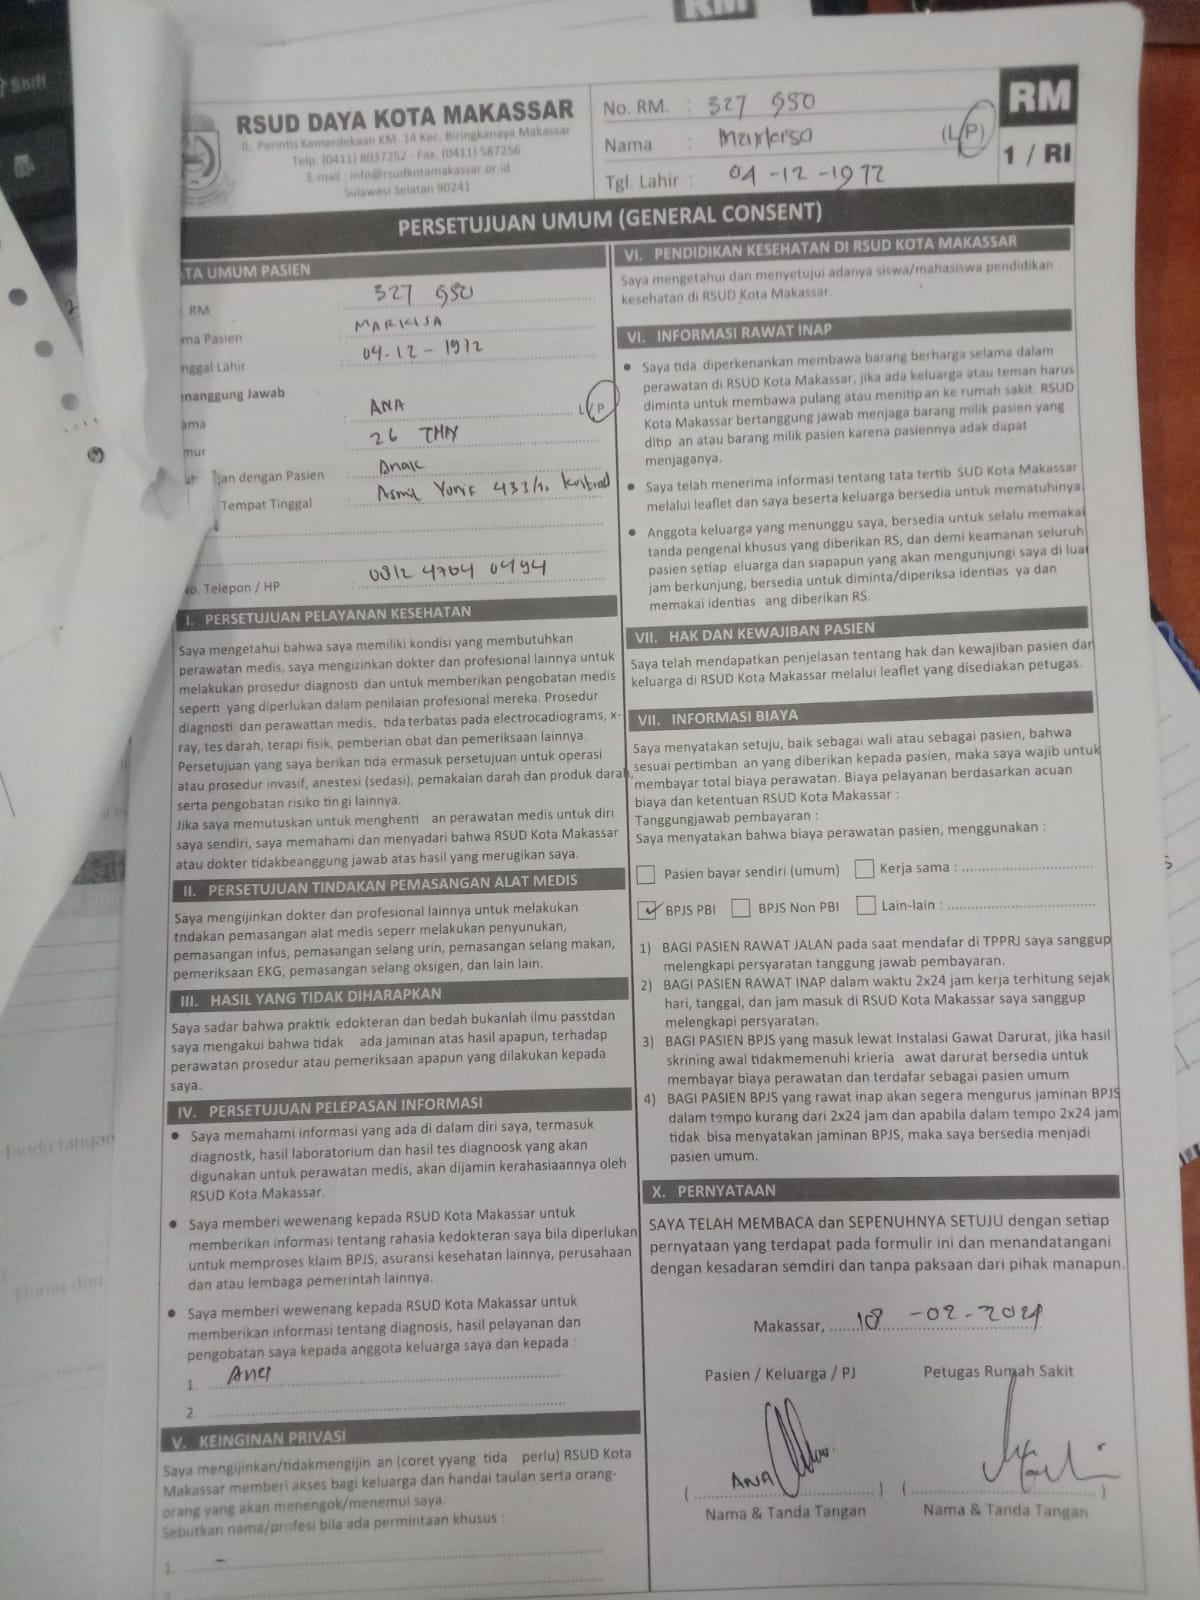 Shift
RM
RSUD DAYA KOTA MAKASSAR
JL. Perintis Kemerdekaan KM. 14 Kec. Biringkanaya Makassar
Telp. (0411) 8037252 - Fax. (0411) 587256
E-mail : info@rsudkotamakassar.or.id
Sulawesi Selatan 90241
No. RM. : 327 950
Nama : (L/P)
Tgl. Lahir : 04-12-1972
RM
1 / RI
PERSETUJUAN UMUM (GENERAL CONSENT)
TA UMUM PASIEN
RM : 327 950
ma Pasien : MARKISA
nggal Lahir : 04-12-1972
nanggung Jawab
ama : ANA L/P
mur : 26 THN
gan dengan Pasien : Anak
Tempat Tinggal : Asmil Yonif 433/
No. Telepon / HP : 0812 4704 0494
I. PERSETUJUAN PELAYANAN KESEHATAN
Saya mengetahui bahwa saya memiliki kondisi yang membutuhkan
perawatan medis, saya mengizinkan dokter dan profesional lainnya untuk
melakukan prosedur diagnosti dan untuk memberikan pengobatan medis
seperti yang diperlukan dalam penilaian profesional mereka. Prosedur
diagnosti dan perawattan medis, tida terbatas pada electrocadiograms, x-
ray, tes darah, terapi fisik, pemberian obat dan pemeriksaan lainnya.
Persetujuan yang saya berikan tida ermasuk persetujuan untuk operasi
atau prosedur invasif, anestesi (sedasi), pemakaian darah dan produk darah,
serta pengobatan risiko tin gi lainnya.
Jika saya memutuskan untuk menghenti an perawatan medis untuk diri
saya sendiri, saya memahami dan menyadari bahwa RSUD Kota Makassar
atau dokter tidakbeanggung jawab atas hasil yang merugikan saya.
II. PERSETUJUAN TINDAKAN PEMASANGAN ALAT MEDIS
Saya mengijinkan dokter dan profesional lainnya untuk melakukan
tndakan pemasangan alat medis seperr melakukan penyunukan,
pemasangan infus, pemasangan selang urin, pemasangan selang makan,
pemeriksaan EKG, pemasangan selang oksigen, dan lain lain.
III. HASIL YANG TIDAK DIHARAPKAN
Saya sadar bahwa praktik edokteran dan bedah bukanlah ilmu passtdan
saya mengakui bahwa tidak ada jaminan atas hasil apapun, terhadap
perawatan prosedur atau pemeriksaan apapun yang dilakukan kepada
saya.
IV. PERSETUJUAN PELEPASAN INFORMASI
● Saya memahami informasi yang ada di dalam diri saya, termasuk
diagnostk, hasil laboratorium dan hasil tes diagnoosk yang akan
digunakan untuk perawatan medis, akan dijamin kerahasiaannya oleh
RSUD Kota Makassar.
● Saya memberi wewenang kepada RSUD Kota Makassar untuk
memberikan informasi tentang rahasia kedokteran saya bila diperlukan
untuk memproses klaim BPJS, asuransi kesehatan lainnya, perusahaan
dan atau lembaga pemerintah lainnya.
● Saya memberi wewenang kepada RSUD Kota Makassar untuk
memberikan informasi tentang diagnosis, hasil pelayanan dan
pengobatan saya kepada anggota keluarga saya dan kepada :
1. Ana
2.
V. KEINGINAN PRIVASI
Saya mengijinkan/tidakmengijin an (coret yyang tida perlu) RSUD Kota
Makassar memberi akses bagi keluarga dan handai taulan serta orang-
orang yang akan menengok/menemui saya.
Sebutkan nama/profesi bila ada permintaan khusus :
1. -
VI. PENDIDIKAN KESEHATAN DI RSUD KOTA MAKASSAR
Saya mengetahui dan menyetujui adanya siswa/mahasiswa pendidikan
kesehatan di RSUD Kota Makassar.
VI. INFORMASI RAWAT INAP
● Saya tida diperkenankan membawa barang berharga selama dalam
perawatan di RSUD Kota Makassar, jika ada keluarga atau teman harus
diminta untuk membawa pulang atau menitip an ke rumah sakit. RSUD
Kota Makassar bertanggung jawab menjaga barang milik pasien yang
ditip an atau barang milik pasien karena pasiennya adak dapat
menjaganya.
● Saya telah menerima informasi tentang tata tertib SUD Kota Makassar
melalui leaflet dan saya beserta keluarga bersedia untuk mematuhinya
● Anggota keluarga yang menunggu saya, bersedia untuk selalu memakai
tanda pengenal khusus yang diberikan RS, dan demi keamanan seluruh
pasien setiap eluarga dan siapapun yang akan mengunjungi saya di luar
jam berkunjung, bersedia untuk diminta/diperiksa identias ya dan
memakai identias ang diberikan RS.
VII. HAK DAN KEWAJIBAN PASIEN
Saya telah mendapatkan penjelasan tentang hak dan kewajiban pasien dan
keluarga di RSUD Kota Makassar melalui leaflet yang disediakan petugas.
VII. INFORMASI BIAYA
Saya menyatakan setuju, baik sebagai wali atau sebagai pasien, bahwa
sesuai pertimban an yang diberikan kepada pasien, maka saya wajib untuk
membayar total biaya perawatan. Biaya pelayanan berdasarkan acuan
biaya dan ketentuan RSUD Kota Makassar :
Tanggungjawab pembayaran :
Saya menyatakan bahwa biaya perawatan pasien, menggunakan :
Pasien bayar sendiri (umum) Kerja sama :
✓ BPJS PBI BPJS Non PBI Lain-lain :
1) BAGI PASIEN RAWAT JALAN pada saat mendafar di TPPRJ saya sanggup
melengkapi persyaratan tanggung jawab pembayaran.
2) BAGI PASIEN RAWAT INAP dalam waktu 2x24 jam kerja terhitung sejak
hari, tanggal, dan jam masuk di RSUD Kota Makassar saya sanggup
melengkapi persyaratan.
3) BAGI PASIEN BPJS yang masuk lewat Instalasi Gawat Darurat, jika hasil
skrining awal tidakmemenuhi krieria awat darurat bersedia untuk
membayar biaya perawatan dan terdafar sebagai pasien umum
4) BAGI PASIEN BPJS yang rawat inap akan segera mengurus jaminan BPJS
dalam tempo kurang dari 2x24 jam dan apabila dalam tempo 2x24 jam
tidak bisa menyatakan jaminan BPJS, maka saya bersedia menjadi
pasien umum.
X. PERNYATAAN
SAYA TELAH MEMBACA dan SEPENUHNYA SETUJU dengan setiap
pernyataan yang terdapat pada formulir ini dan menandatangani
dengan kesadaran semdiri dan tanpa paksaan dari pihak manapun.
Makassar, 18 -02-2024
Pasien / Keluarga / PJ Petugas Rumah Sakit
ANA
Nama & Tanda Tangan Nama & Tanda Tangan